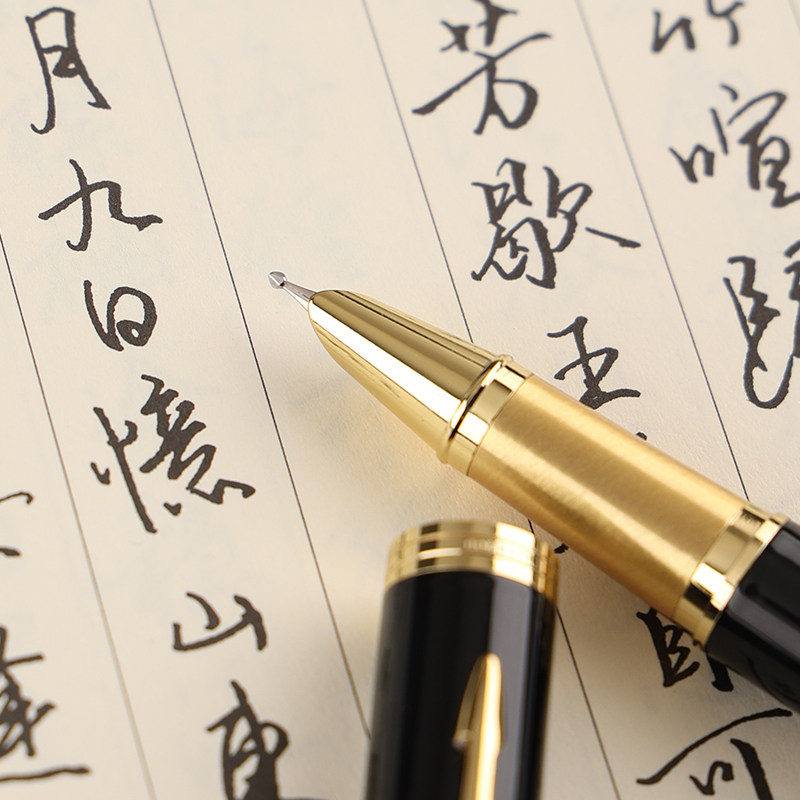 竹喧
芳歇王可
月九日憶山東